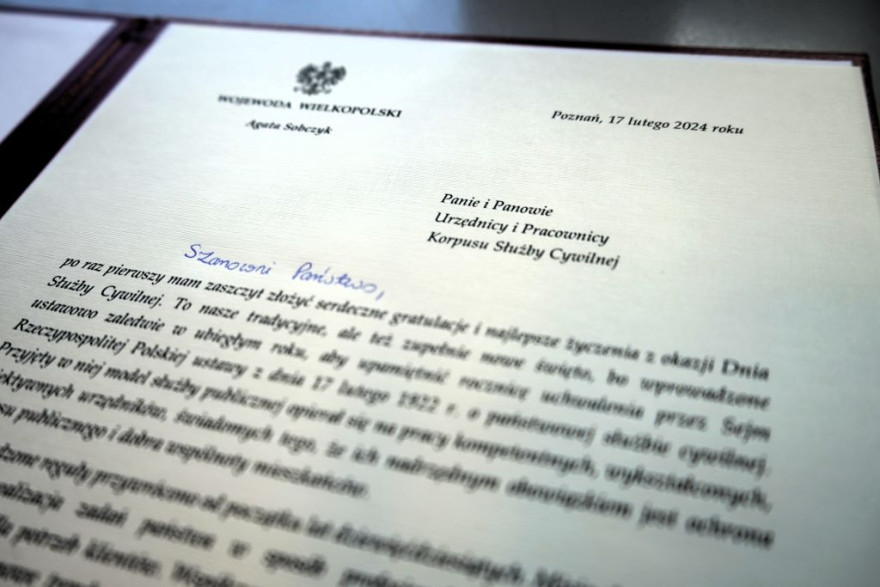 WOJEWODA WIELKOPOLSKI
Agata Sobczyk
Poznań, 17 lutego 2024 roku
Panie i Panowie
Urzędnicy i Pracownicy
Korpusu Służby Cywilnej
Szanowni Państwo,
po raz pierwszy mam zaszczyt złożyć serdeczne gratulacje i najlepsze życzenia z okazji Dnia
Służby Cywilnej. To nasze tradycyjne, ale też zupełnie nowe święto, bo wprowadzone
ustawowo zaledwie w ubiegłym roku, aby upamiętnić rocznicę uchwalenia przez Sejm
Rzeczypospolitej Polskiej ustawy z dnia 17 lutego 1922 r. o państwowej służbie cywilnej.
Przyjęty w niej model służby publicznej opierał się na pracy kompetentnych, wykształconych,
ektywnych urzędników, świadomych tego, że ich nadrzędnym obowiązkiem jest ochrona
su publicznego i dobra wspólnoty mieszkańców.
dzone reguły przywrócono od początku lat dziewięćdziesiątych.
ealizacja zadań państwa w sposób
potrzeb klientów.